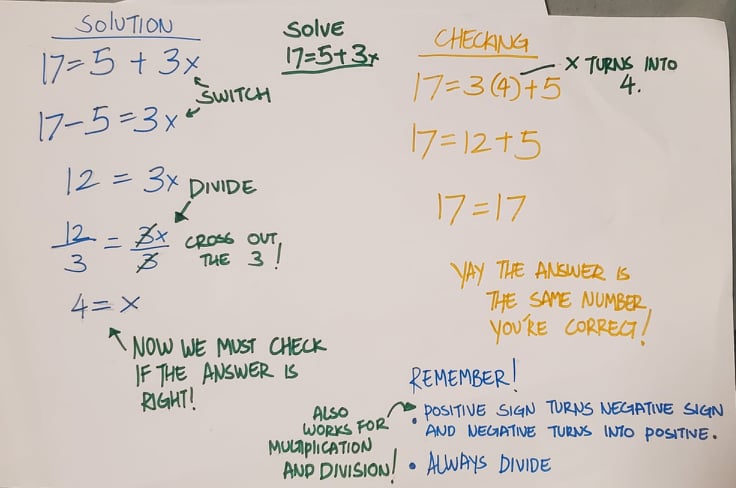 SOLUTION
17=5+3x
SWITCH
17-5=3x
12 = 3x
DIVIDE
12/3 = 3x/3
CROSS OUT
THE 3!
4=x
NOW WE MUST CHECK
IF THE ANSWER IS
RIGHT!
SOLVE
17=5+3x
CHECKING
17=3(4)+5
X TURNS INTO
4.
17=12+5
17=17
YAY THE ANSWER IS
THE SAME NUMBER
YOU'RE CORRECT!
REMEMBER!
• POSITIVE SIGN TURNS NEGATIVE SIGN
AND NEGATIVE TURNS INTO POSITIVE.
ALSO
WORKS FOR
MULTIPLICATION
AND DIVISION!
• ALWAYS DIVIDE